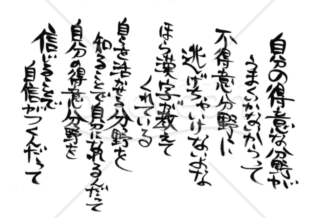 自分の得意な分野が
うまくいかないからって
不得意分野に
逃げちゃいけないよな
ほら漢字が教えて
くれている
自分を活かせる分野を
知ることで自分になれるんだって
自分の得意分野を
信じることで
自信がつくんだって